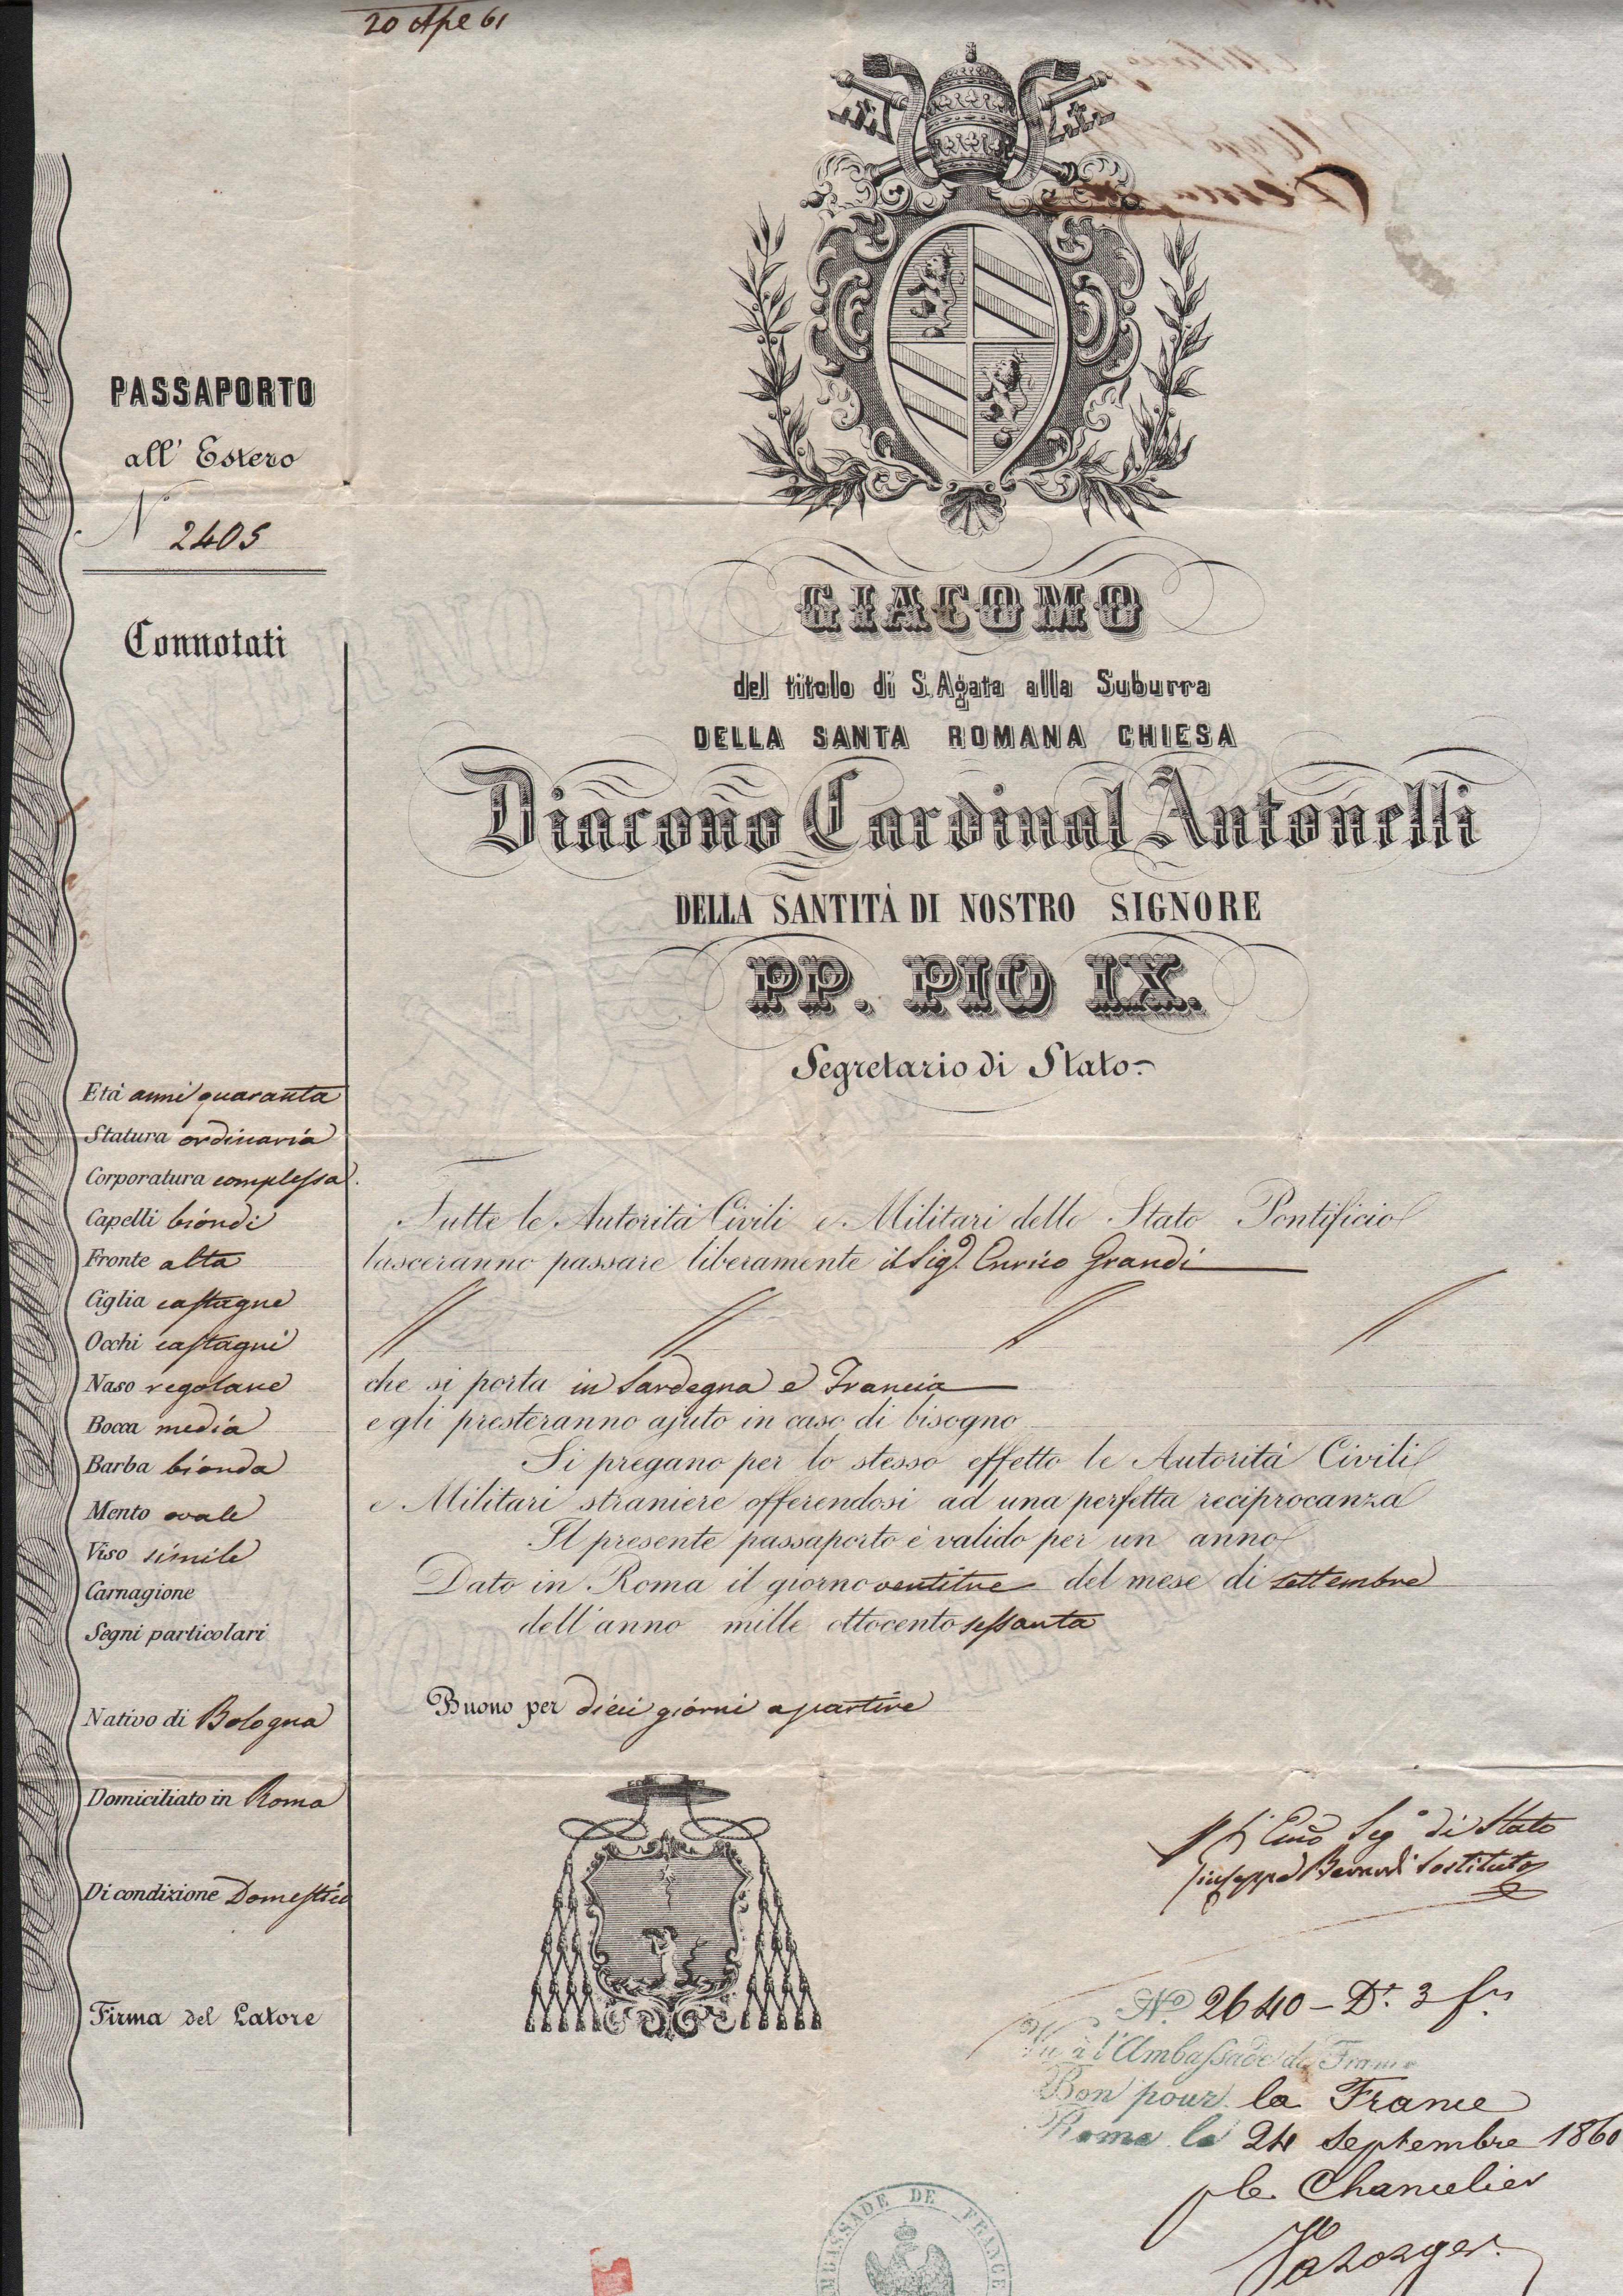 20 Ape 61
PASSAPORTO
all' Estero
N 2405
Connotati
Età anni quaranta
Statura ordinaria
Corporatura complessa
Capelli biondi
Fronte alta
Ciglia castagne
Occhi castagni
Naso regolare
Bocca media
Barba bionda
Mento ovale
Viso simile
Carnagione
Segni particolari
Nativo di Bologna
Domiciliato in Roma
Di condizione Domestico
Firma del Latore
GIACOMO
del titolo di S. Agata alla Suburra
DELLA SANTA ROMANA CHIESA
Diacono Cardinal Antonelli
DELLA SANTITÀ DI NOSTRO SIGNORE
PP. PIO IX.
Segretario di Stato
Tutte le Autorità Civili e Militari dello Stato Pontificio
lasceranno passare liberamente il Sigr. Enrico Grandi
che si porta in Sardegna e Francia
e gli presteranno ajuto in caso di bisogno
Si pregano per lo stesso effetto le Autorità Civili
e Militari straniere offerendosi ad una perfetta reciprocanza
Il presente passaporto è valido per un anno
Dato in Roma il giorno ventitre del mese di settembre
dell'anno mille ottocento sessanta
Buono per dieci giorni a partire
Emo Sego di Stato
Giuseppe Berardi Sostituto
No. 2640 - Dt. 3 frs
Vu à l'Ambassade de France
Bon pour la France
Rome le 24 Septembre 1860
p le Chancelier
AMBASSADE DE FRANCE